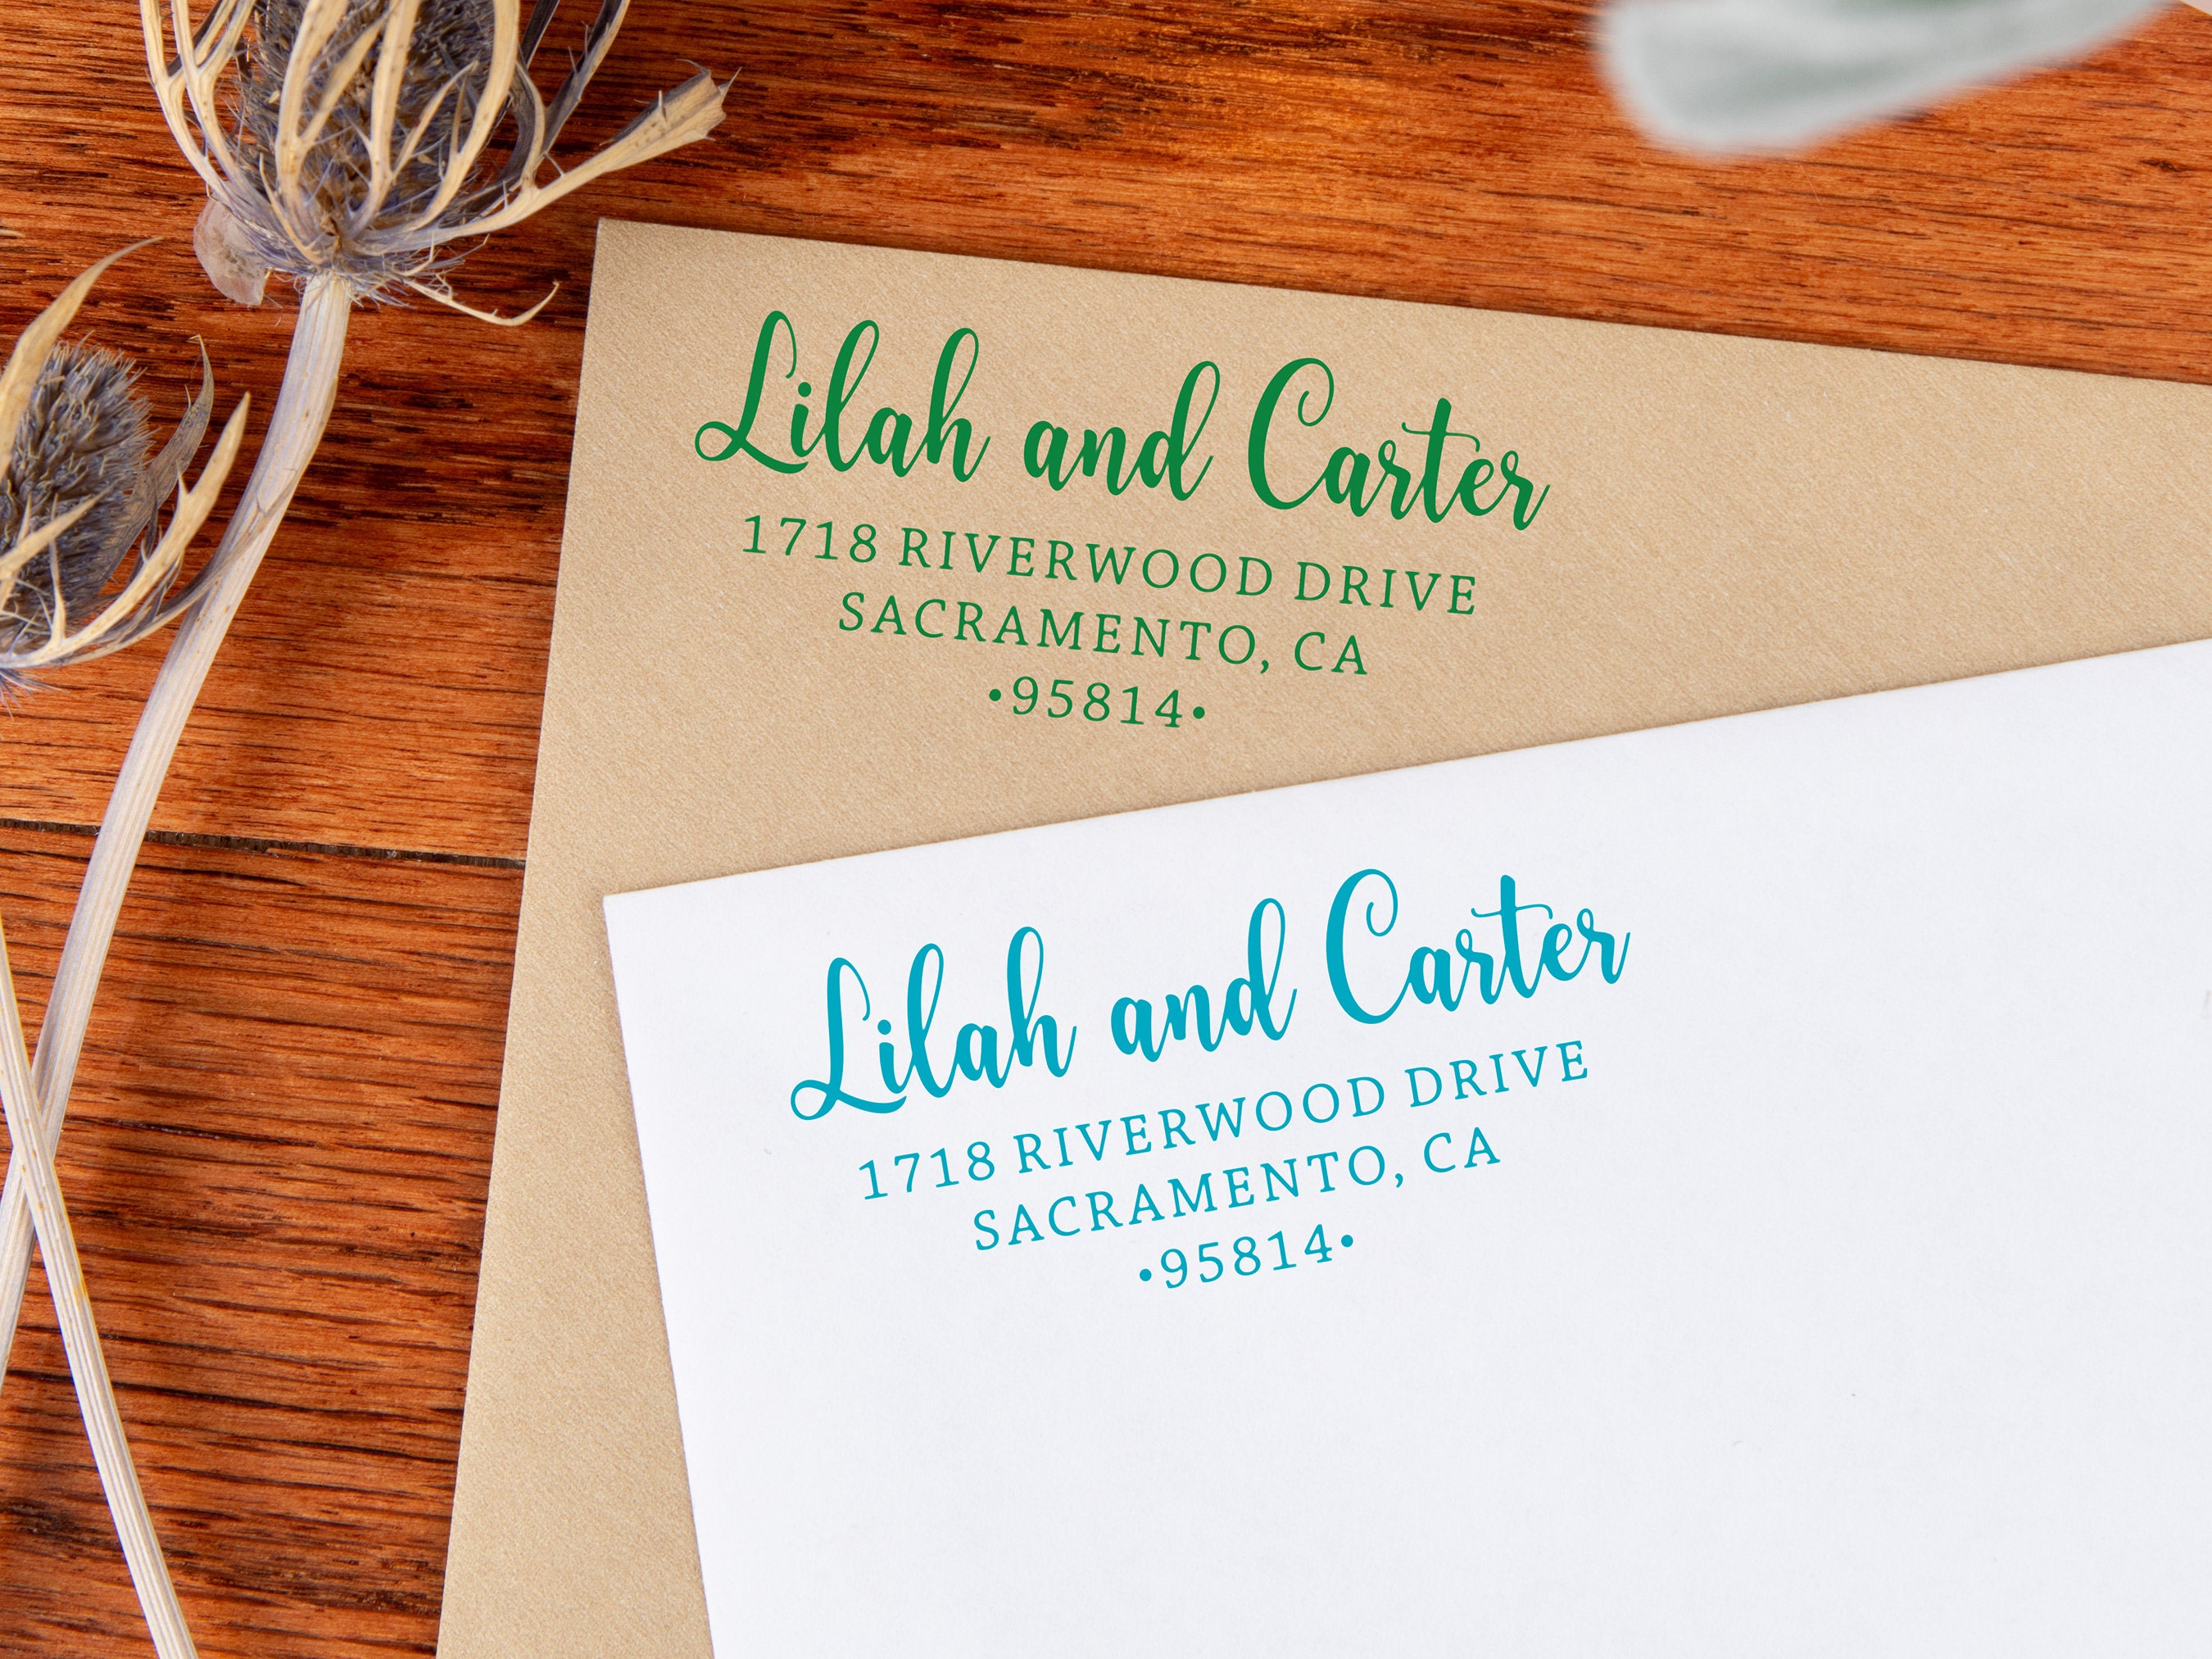 Lilah and Carter
1718 RIVERWOOD DRIVE
SACRAMENTO, CA
•95814•
Lilah and Carter
1718 RIVERWOOD DRIVE
SACRAMENTO, CA
•95814•